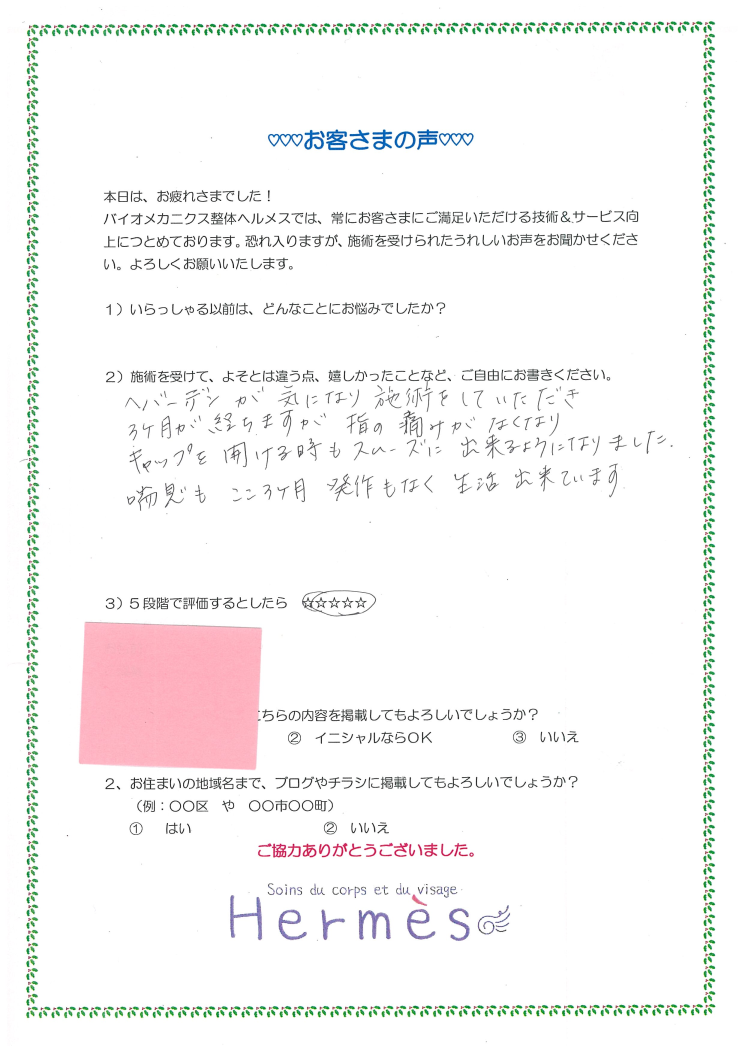 ♡♡♡お客さまの声♡♡♡
本日は、お疲れさまでした！
バイオメカニクス整体ヘルメスでは、常にお客さまにご満足いただける技術＆サービス向
上につとめております。恐れ入りますが、施術を受けられたうれしいお声をお聞かせくださ
い。よろしくお願いいたします。
１）いらっしゃる以前は、どんなことにお悩みでしたか？
２）施術を受けて、よそとは違う点、嬉しかったことなど、ご自由にお書きください。
ヘバーデンが気になり施術をしていただき
3ヶ月が経ちますが指の痛みがなくなり
キャップを開ける時もスムーズに出来るようになりました.
喘息もここ3ヶ月発作もなく生活出来ています
３）５段階で評価するとしたら ☆☆☆☆☆
こちらの内容を掲載してもよろしいでしょうか？
② イニシャルならＯＫ ③ いいえ
２、お住まいの地域名まで、ブログやチラシに掲載してもよろしいでしょうか？
（例：〇〇区 や 〇〇市〇〇町）
① はい ② いいえ
ご協力ありがとうございました。
Soins du corps et du visage
Hermès